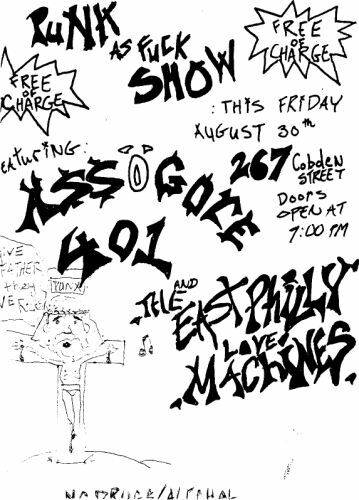 PUNK
AS FUCK
SHOW
FREE
OF
CHARGE
FREE
OF
CHARGE
: THIS FRIDAY
AUGUST 30th
eaTuring:
267 Cobden
STREET
DOORS
OPEN AT
7:00 PM
ASSOGORE
401
AND
THE EAST PHILLY
LOVE
MACHINES
GIVE
FATHER
they
NO DRUGS/ALCOHOL